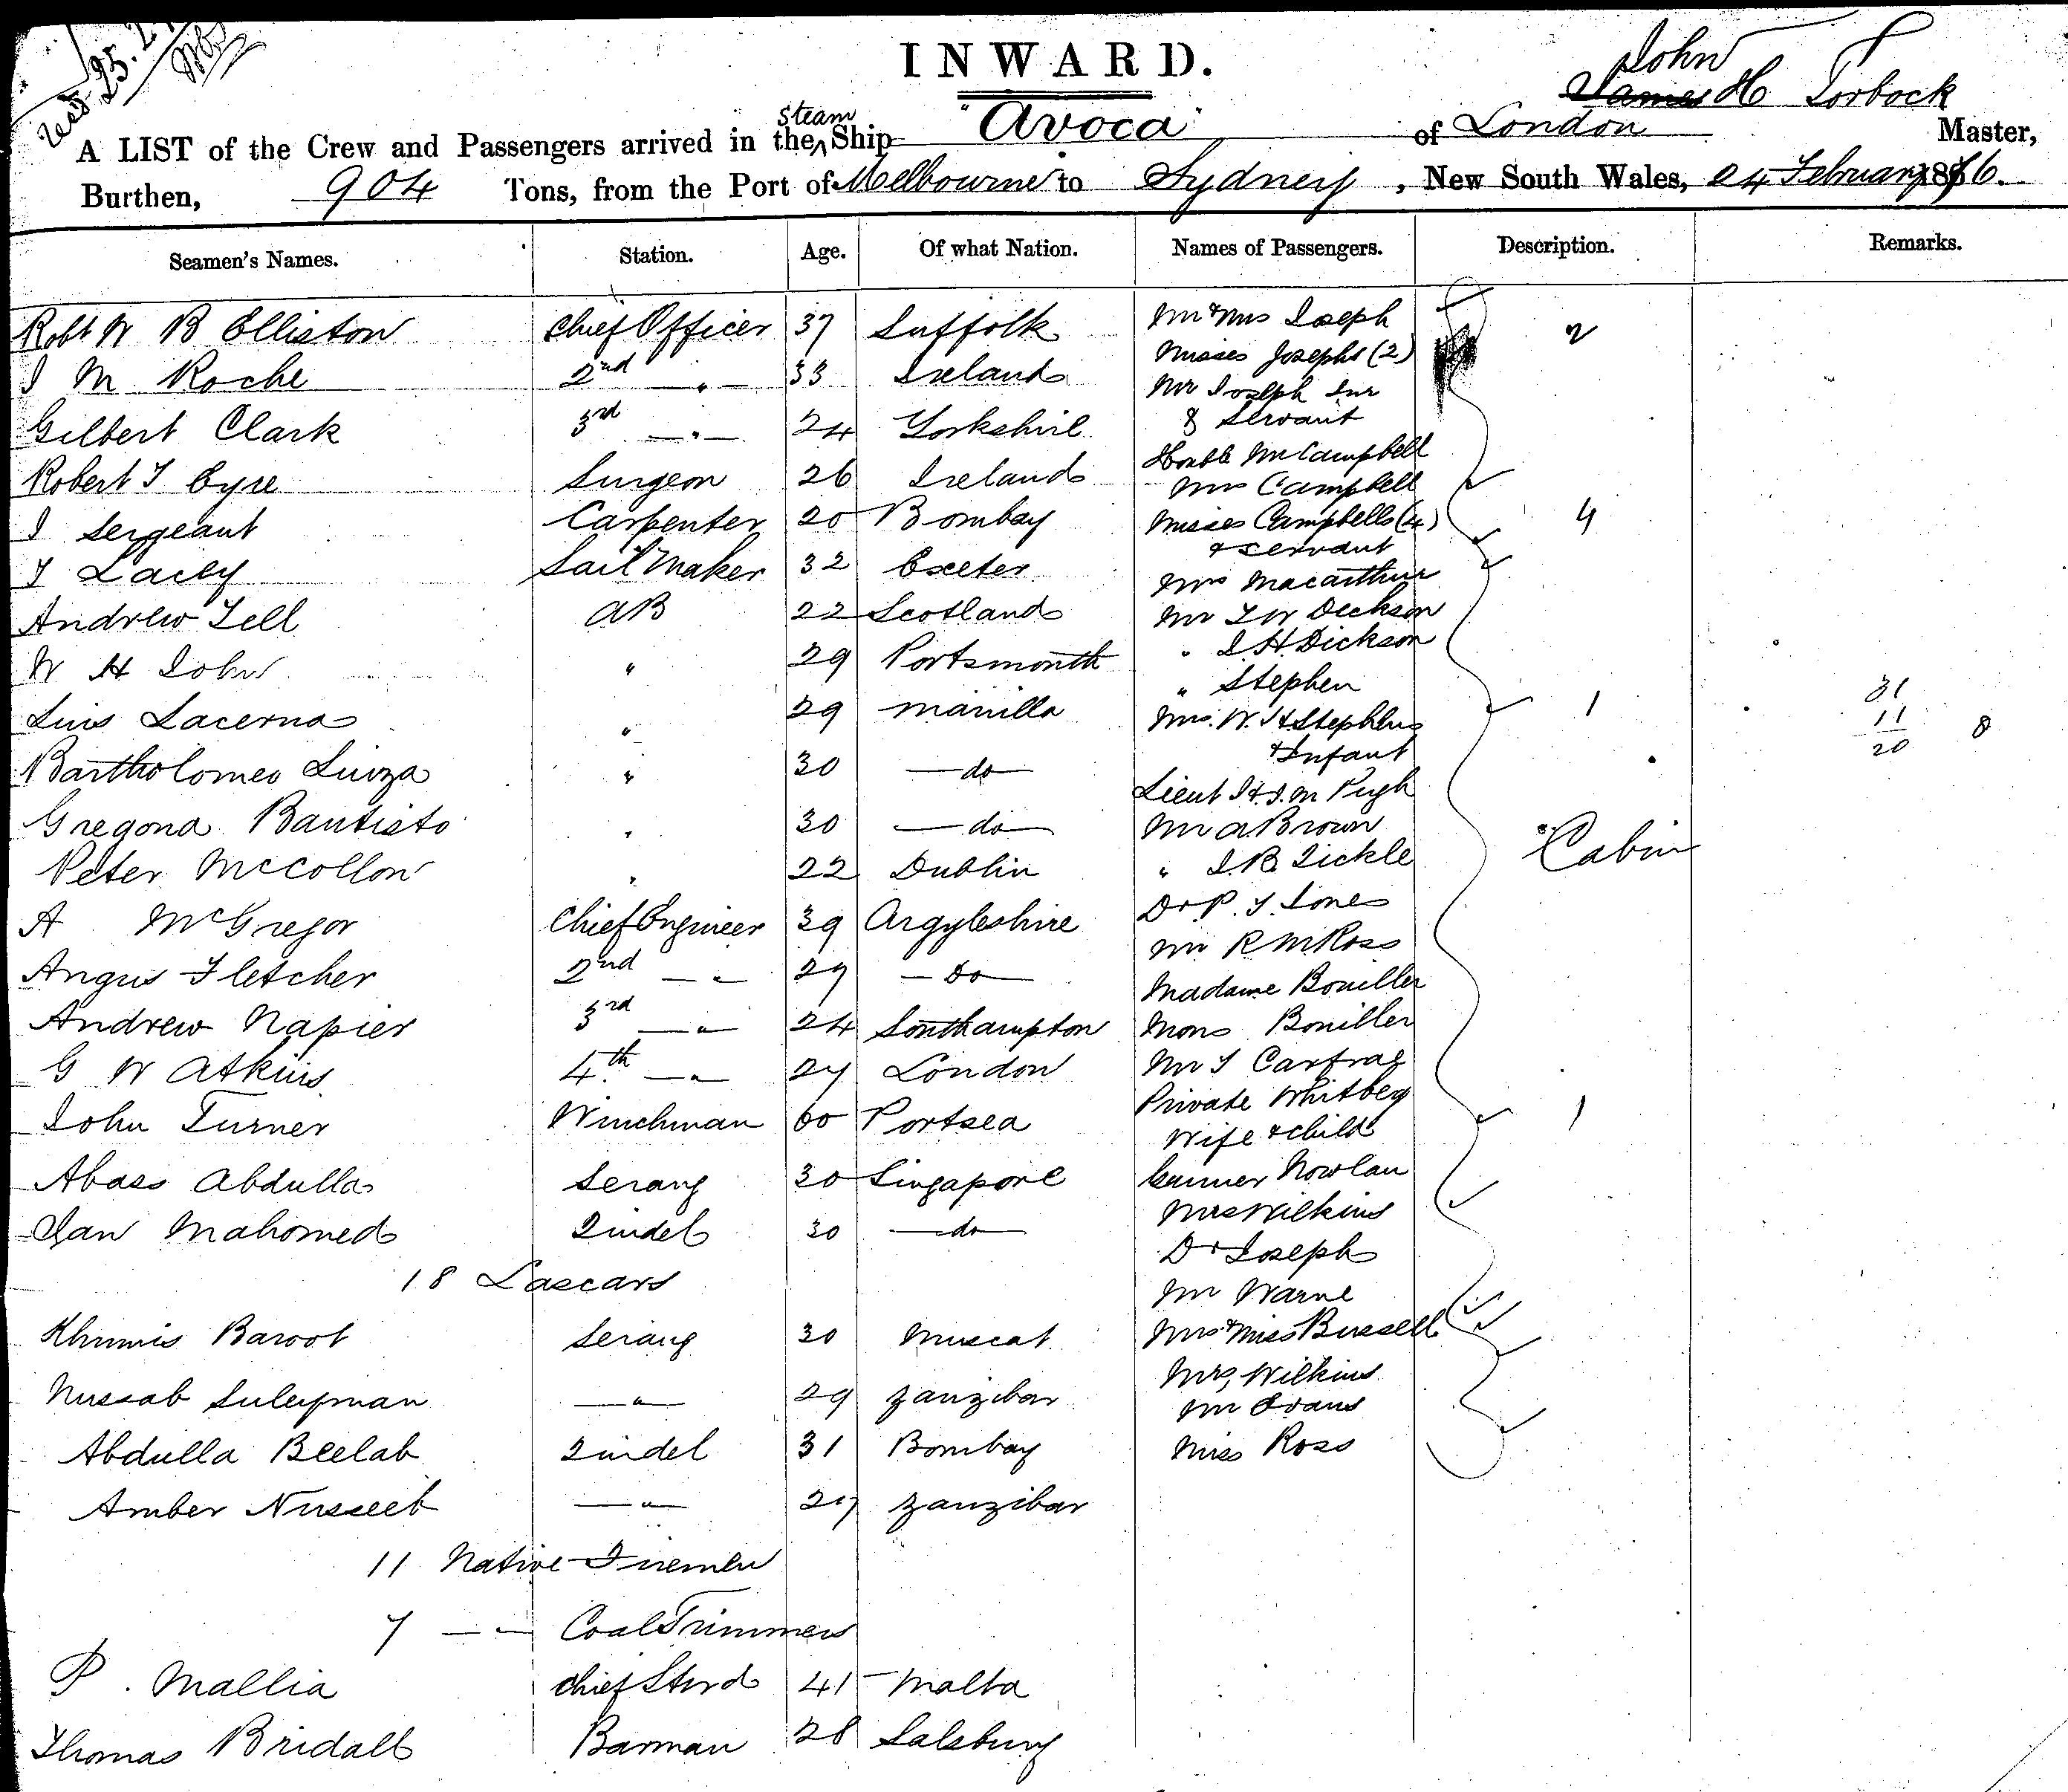 INWARD.
John
James H Torbock
A LIST of the Crew and Passengers arrived in the Steam Ship "Avoca" of London Master,
Burthen, 904 Tons, from the Port of Melbourne to Sydney, New South Wales, 24 February 1876.
Seamen's Names. Station. Age. Of what Nation. Names of Passengers. Description. Remarks.
Robt W B Elliston Chief Officer 37 Suffolk Mr & Mrs Joseph 2
Misses Josephs (2)
J M Roche 2nd " 33 Ireland Mr Joseph Jnr
& Servant
Gilbert Clark 3rd " 24 Yorkshire
Honble Mr Campbell
Robert T Eyre Surgeon 26 Ireland Mrs Campbell
J Sergeant Carpenter 20 Bombay Misses Campbells (4) 4
& Servant
T Lacey Sail Maker 32 Exeter Mrs Macarthur
Andrew Tell AB 22 Scotland Mr T W Dickson
" J H Dickson
W H John " 29 Portsmouth " Stephen
Luis Lacerna " 29 Manilla Mrs. W. H Stephens 1 31
& Infant 11 8
20
Bartholomeo " 30 do Lieut Pugh
Bautisto " 30 do Mr A Brown Cabin
Peter McCollon " 22 Dublin " J. B. Tickle
A McGregor Chief Engineer 39 Argyleshire Dr P. S. Jones
Mr R M Ross
Angus Fletcher 2nd " 29 Do Madame Bouiller
Andrew Napier 3rd " 24 Southampton Mons Bouiller
G W Atkins 4th " 27 London Mr J Carfrae
Private Whitbey
John Turner Winchman 60 Portsea Wife & child 1
Abass Abdulla Serang 30 Singapore Gunner Nowlan
Mrs Wilkins
Jan Mahomed Tindel 30 do Dr Joseph
18 Lascars Mr Warne
Khumis Baroot Serang 30 Muscat Mrs & Miss Bussell
Mrs Wilkins
Nussab Suleyman " 29 Zanzibar Mr Evans
Abdulla Beelab Tindel 31 Bombay Miss Ross
Amber Nusseeb " 27 Zanzibar
11 Native Firemen
7 " Coal Trimmers
P. Mallia Chief Stwd 41 Malta
Thomas Bridall Barman 28 Salsbury